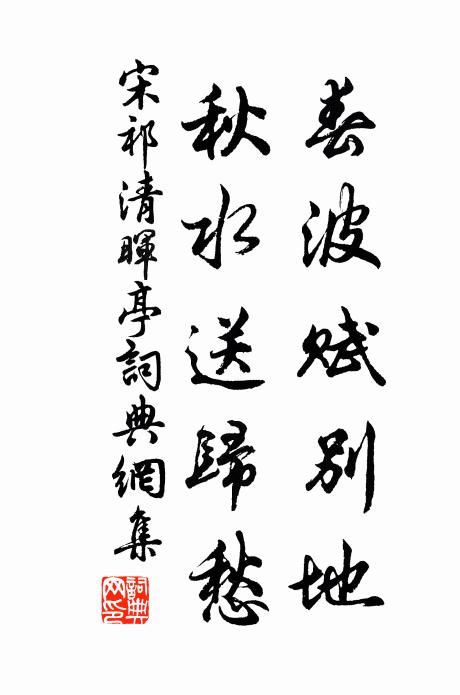 春波賦別地
秋水送歸愁
宋祁清暉亭詞典網集
詞典
网印